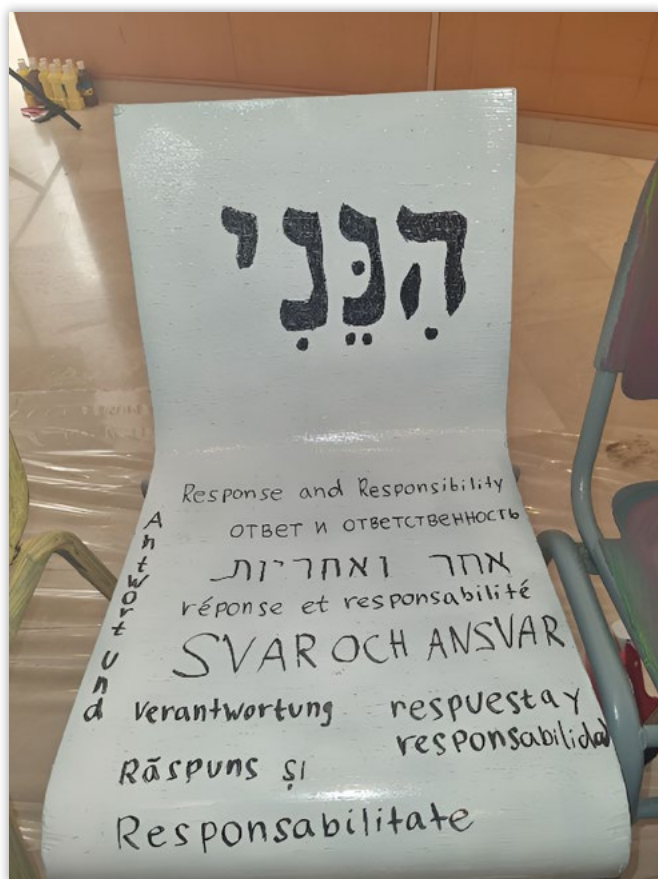 הִנֵּנִי
Response and Responsibility
ОТВЕТ И ОТВЕТСТВЕННОСТЬ
אחר ואחריות
réponse et responsabilité
SVAR OCH ANSVAR
Antwort und
Verantwortung
respuesta y
responsabilidad
Răspuns și
Responsabilitate